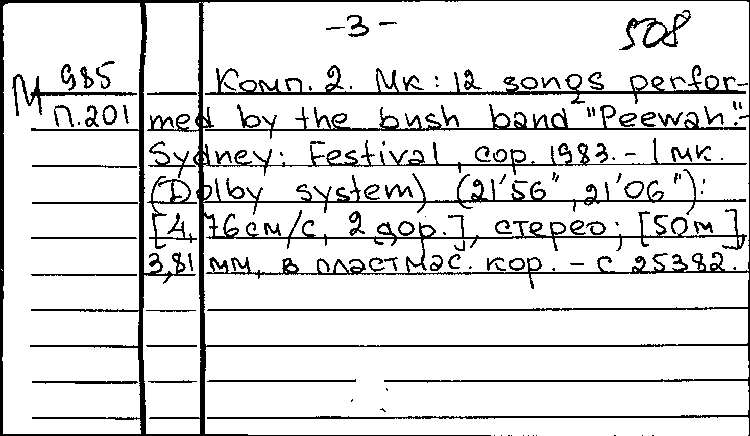 -3-
508
М 985
П.201
Комп. 2. Мк: 12 songs perfor-
med by the bush band "Peewah".-
Sydney: Festival, cop. 1983. - 1 мк.
(Dolby system) (21'56", 21'06"):
[4,76 см/с, 2 дор.], стерео; [50м],
3,81 мм, в пластмас. кор. - С 25382.